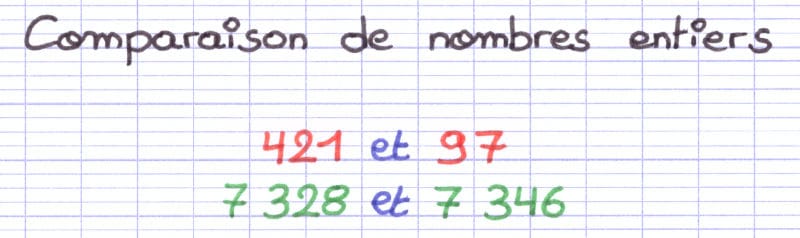 Comparaison de nombres entiers
421 et 97
7 328 et 7 346